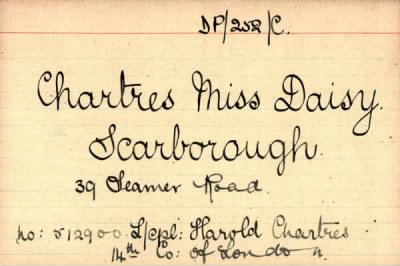 DP/252/C.
Chartres Miss Daisy.
Scarborough.
39 Seamer Road.
no: 512900 L/cpl: Harold Chartres
14th Co: of London